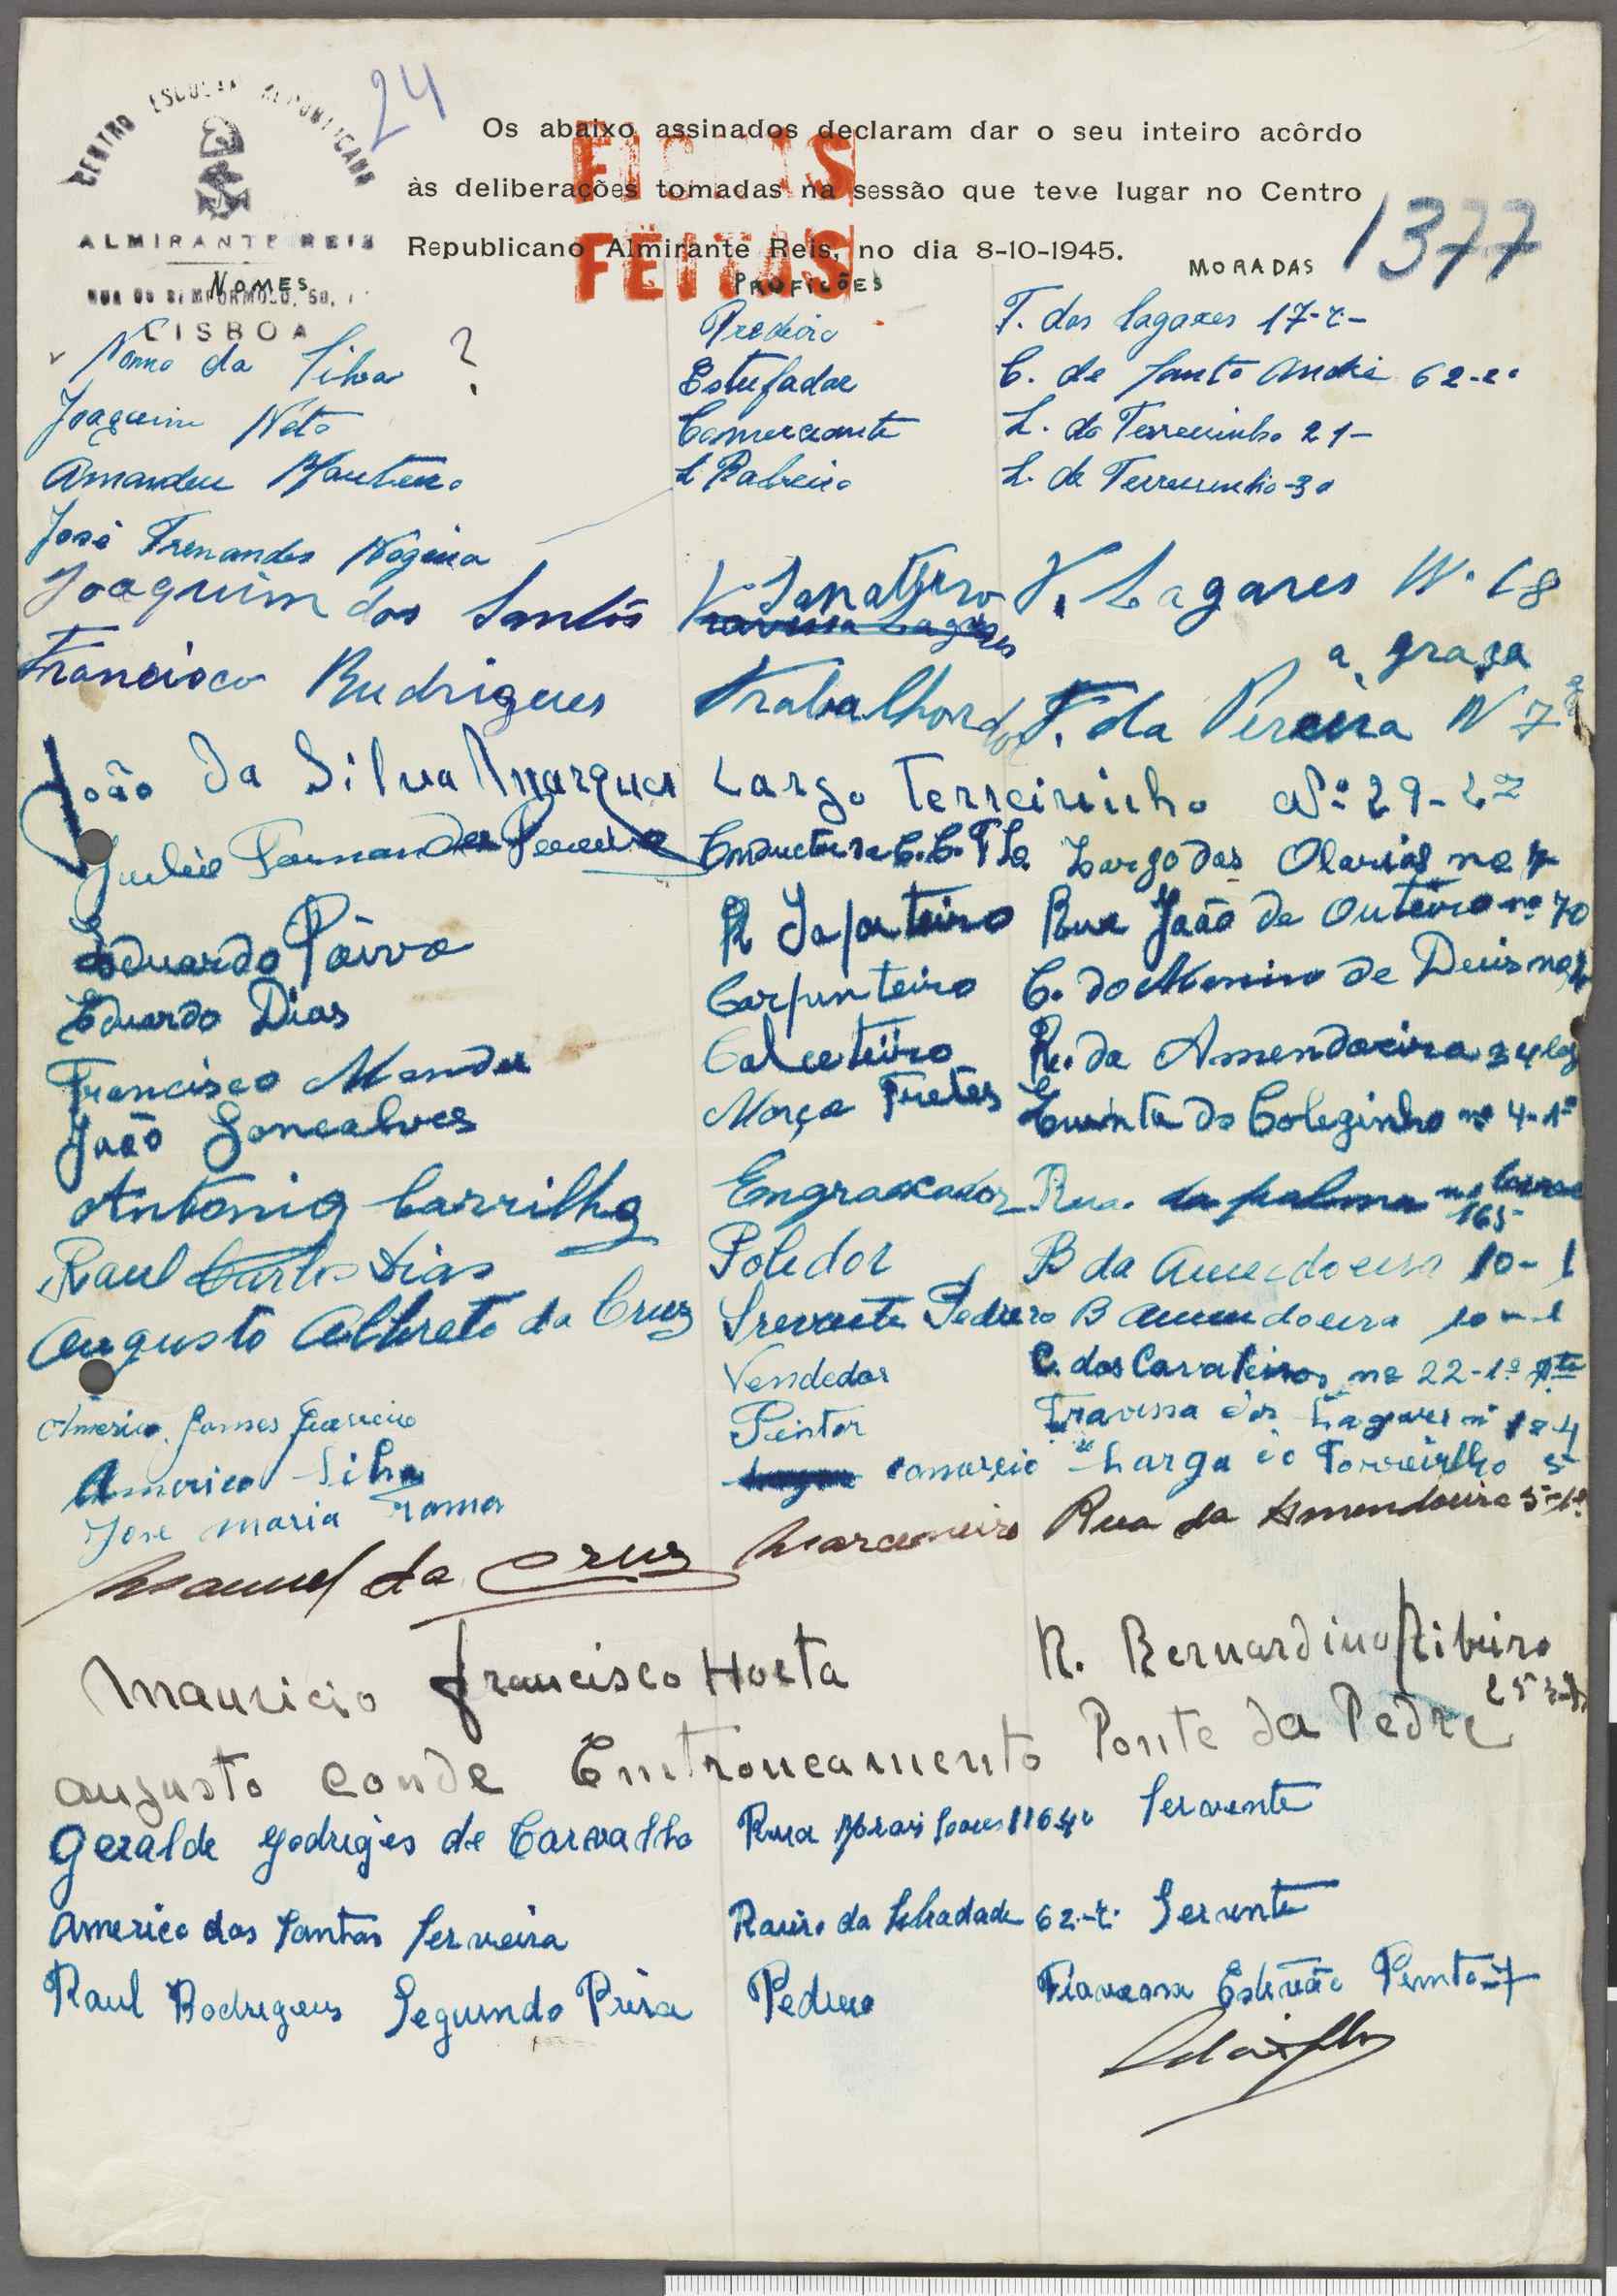 24
CENTRO ESCOLAR REPUBLICANO
ALMIRANTE REIS
LISBOA
Os abaixo assinados declaram dar o seu inteiro acôrdo
às deliberações tomadas na sessão que teve lugar no Centro
Republicano Almirante Reis, no dia 8-10-1945.
FICHAS
FEITAS
1377
NOMES PROFIÇÕES MORADAS
da Silva ? T. dos Lagares 17-r-
Joaquim Neto Estufador C. de Santo André 62-
Amandeu Monteiro Comerciante L. do Terreirinho 21-
José Frenandes Nogueira L. do Terreirinho-30
Joaquim dos Santos T. Lagares Nº 18
a graça
Francisco Rudrigues Trabalhordor T. da Pereira N 7
João da Silva Marques Largo Terreirinho Nº 29-
Julio Fernandes Pereira Conductor da C.C.F.L. Largo das Olarias nº
Eduardo Paiva Sapateiro Rua João do Outeiro nº 70
Eduardo Dias Carpinteiro C. do Menino de Deus nº
Francisco Mendes Calceteiro R. da Amendoeira 34
João Gonçalves Moço Fretes Quinta do Coleginho nº 4-1º
António Carrilho Engraxador Rua da palma nº
165
Raul Carlos Dias Polidor B da Amendoeira 10-1
Augusto Albreto da Cruz Srevente Pedrero B Amendoeira 10-1
Americo Gomes Guerreiro Vendedor C. dos Cavaleiros nº 22-1º
Americo Silva Pintor Travessa dos Lagares nº
José Maria Rama comercio Largo do Torreirilho 5
Manuel da Cruz Marceneiro Rua da Amendoeira 5-1º
Mauricio Francisco Horta R. Bernardino Ribeiro
25
Augusto Conde Emtroncamento Ponte da Pedre
Geralde Godriges de Carvalho Rua Morais Soares 116 4º Servente
Americo dos Santos Serveira 62-r. Servente
Raul Rodrigues Segundo Pedrero Travessa Estevão Pinto-7